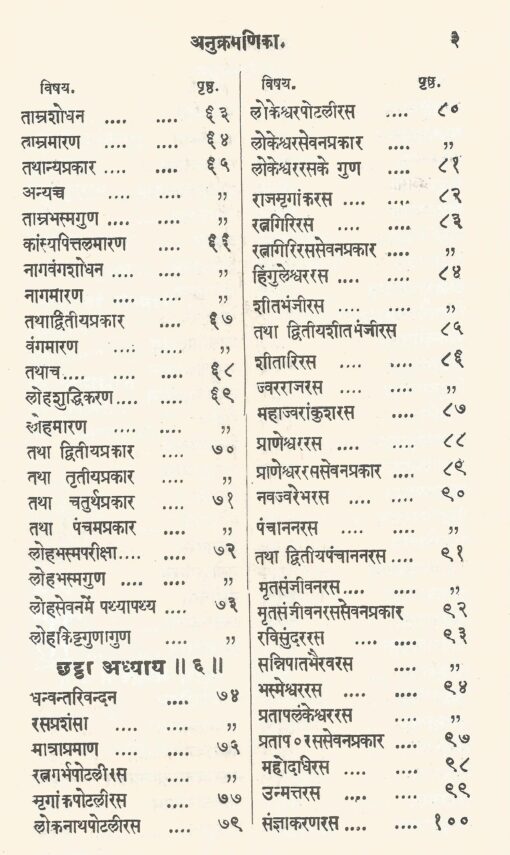 अनुक्रमणिका.
३
विषय. पृष्ठ.
ताम्रशोधन .... .... ६३
ताम्रमारण .... .... ६४
तथान्यप्रकार .... .... ६५
अन्यच्च .... .... ,,
ताम्रभस्मगुण .... .... ,,
कांस्यपित्तलमारण .... ६६
नागवंगशोधन .... .... ,,
नागमारण .... .... ,,
तथाद्वितीयप्रकार .... ६७
वंगमारण .... .... ,,
तथाच.... .... .... ६८
लोहशुद्धिकरण.... .... ६९
लोहमारण .... .... ,,
तथा द्वितीयप्रकार .... ७०
तथा तृतीयप्रकार .... ,,
तथा चतुर्थप्रकार .... ७१
तथा पंचमप्रकार .... ,,
लोहभस्मपरीक्षा.... .... ७२
लोहभस्मगुण .... .... ,,
लोहसेवनमें पथ्यापथ्य .... ७३
लोहकिट्टगुणागुण .... ,,
छट्ठा अध्याय ॥ ६ ॥
धन्वन्तरिवन्दन .... ७४
रसप्रशंसा .... .... ,,
मात्राप्रमाण .... .... ७५
रत्नगर्भपोटलीरस .... ,,
मृगांकपोटलीरस .... ७७
लोकनाथपोटलीरस .... ७९
विषय. पृष्ठ.
लोकेश्वरपोटलीरस .... ८०
लोकेश्वरसेवनप्रकार .... ,,
लोकेश्वररसके गुण .... ८१
राजमृगांकरस .... .... ८२
रत्नगिरिरस .... .... ८३
रत्नगिरिरससेवनप्रकार .... ,,
हिंगुलेश्वररस .... .... ८४
शीतभंजीरस .... .... ,,
तथा द्वितीयशीतभंजीरस ८५
शीतारिरस .... .... ८६
ज्वरराजरस .... .... ,,
महाज्वरांकुशरस .... ८७
प्राणेश्वररस .... .... ८८
प्राणेश्वररससेवनप्रकार .... ८९
नवज्वरेभरस .... .... ९०
पंचाननरस .... .... ,,
तथा द्वितीयपंचाननरस .... ९१
मृतसंजीवनरस.... .... ,,
मृतसंजीवनरससेवनप्रकार ९२
रविसुंदररस .... .... ९३
सन्निपातभैरवरस .... ,,
भस्मेश्वररस .... .... ९४
प्रतापलंकेश्वररस .... ,,
प्रताप०रससेवनप्रकार .... ९७
महोदधिरस .... .... ९८
उन्मत्तरस .... .... ९९
संज्ञाकरणरस .... .... १००